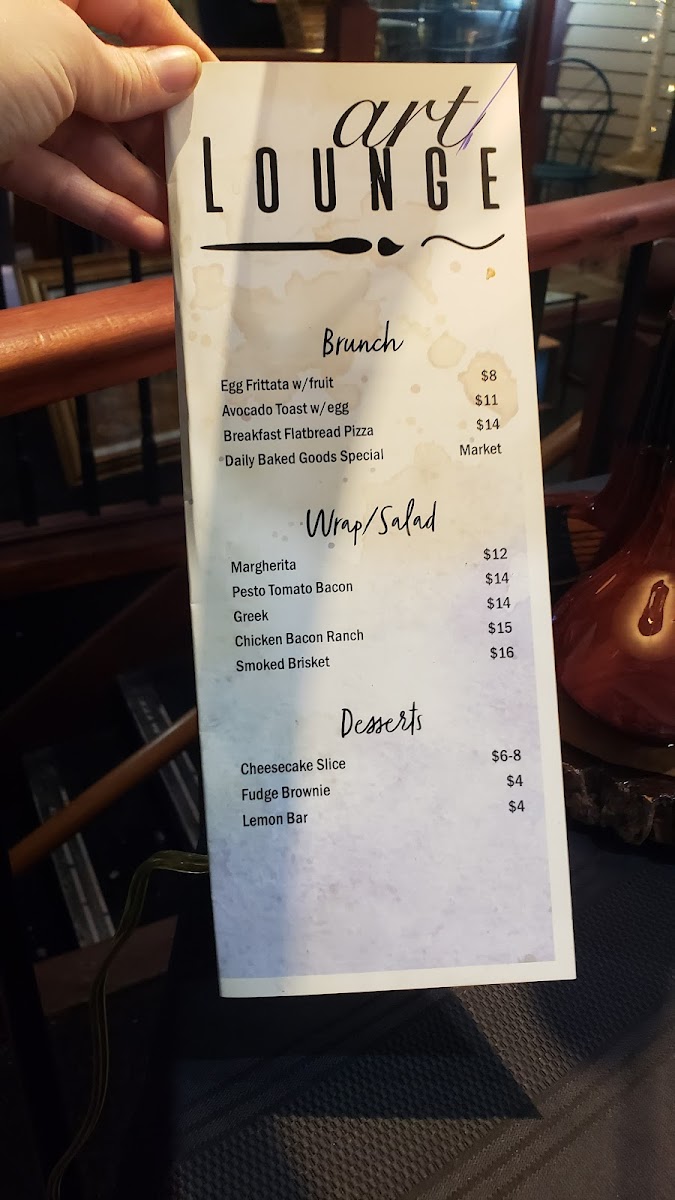 art
LOUNGE
Brunch
Egg Frittata w/fruit $8
Avocado Toast w/egg $11
Breakfast Flatbread Pizza $14
Daily Baked Goods Special Market
Wrap/Salad
Margherita $12
Pesto Tomato Bacon $14
Greek $14
Chicken Bacon Ranch $15
Smoked Brisket $16
Desserts
Cheesecake Slice $6-8
Fudge Brownie $4
Lemon Bar $4